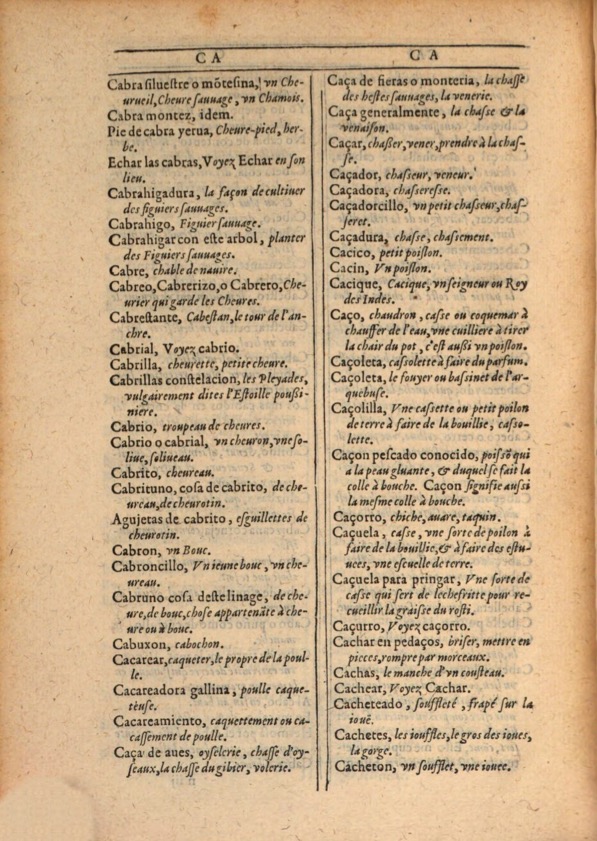 CA
Cabra siluestre o mõtesina, vn Che-
urueil, Cheure sauuage, vn Chamois.
Cabra montez, idem.
Pie de cabra yerua, Cheure-pied, her-
be.
Echar las cabras, Voyez Echar en son
lieu.
Cabrahigadura, la façon de cultiuer
des figuiers sauuages.
Cabrahigo, Figuier sauuage.
Cabrahigar con este arbol, planter
des Figuiers sauuages.
Cabre, chable de nauire.
Cabreo, Cabrerizo, o Cabrero, Che-
urier qui garde les Cheures.
Cabrestante, Cabestan, le tour de l'an-
chre.
Cabrial, Voyez cabrio.
Cabrilla, cheurette, petite cheure.
Cabrillas constelacion, les Pleyades,
vulgairement dites l'Estoille poußi-
niere.
Cabrio, troupeau de cheures.
Cabrio o cabrial, vn cheuron, vne so-
liue, soliueau.
Cabrito, cheureau.
Cabrituno, cosa de cabrito, de che-
ureau, de cheurotin.
Agujetas de cabrito, esguillettes de
cheurotin.
Cabron, vn Bouc.
Cabroncillo, Vn ieune bouc, vn che-
ureau.
Cabruno cosa deste linage, de che-
ure, de bouc, chose appartenãte à che-
ure ou à bouc.
Cabuxon, cabochon.
Cacarear, caqueter, le propre de la poul-
le.
Cacareadora gallina, poulle caque-
teuse.
Cacareamiento, caquettement ou ca-
cassement de poulle.
Caça de aues, oyselerie, chasse d'oy-
seaux, la chasse du gibier, volerie.
CA
Caça de fieras o monteria, la chasse
des bestes sauuages, la venerie.
Caça generalmente, la chasse & la
venaison.
Caçar, chaßer, vener, prendre à la chas-
se.
Caçador, chasseur, veneur.
Caçadora, chasseresse.
Caçadorcillo, vn petit chasseur, chas-
seret.
Caçadura, chasse, chassement.
Cacico, petit poislon.
Cacin, Vn poislon.
Cacique, Cacique, vn seigneur ou Roy
des Indes.
Caço, chaudron, casse ou coquemar à
chauffer de l'eau, vne cuilliere à tirer
la chair du pot, c'est außi vn poislon.
Caçoleta, cassolette à faire du parfum.
Caçoleta, le fouyer ou bassinet de l'ar-
quebuse.
Caçolilla, Vne cassette ou petit poilon
de terre à faire de la bouillie, casso-
lette.
Caçon pescado conocido, poissõ qui
a la peau gluante, & duquel se fait la
colle à bouche. Caçon signifie aussi
la mesme colle à bouche.
Caçorro, chiche, auare, taquin.
Caçuela, casse, vne sorte de poilon à
faire de la bouillie, & à faire des estu-
ues, vne escuelle de terre.
Caçuela para pringar, Vne sorte de
casse qui sert de lechefritte pour re-
cueillir la graisse du rosti.
Caçurro, Voyez caçorro.
Cachar en pedaços, briser, mettre en
pieces, rompre par morceaux.
Cachas, le manche d'vn cousteau.
Cachear, Voyez Cachar.
Cacheteado, souffleté, frapé sur la
iouë.
Cachetes, les iouffles, le gros des ioues,
la gorge.
Cacheton, vn soufflet, vne iouee.